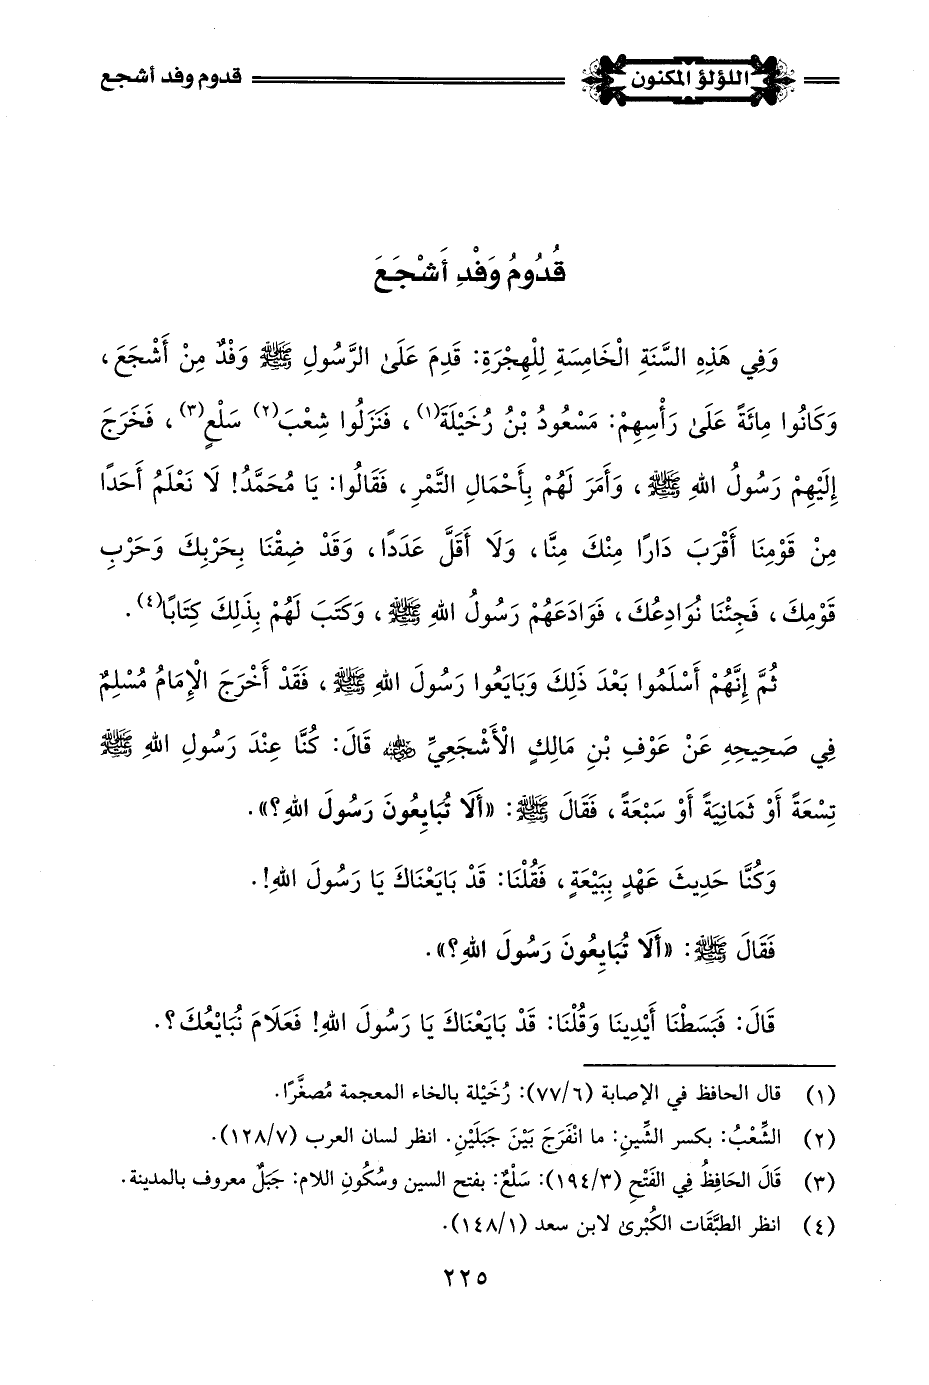 اللؤلؤ المكنون
قدوم وفد أشجع
قُدُومُ وَفْدِ أَشْجَعَ
وَفِي هَذِهِ السَّنَةِ الْخَامِسَةِ لِلْهِجْرَةِ: قَدِمَ عَلَى الرَّسُولِ ﷺ وَفْدٌ مِنْ أَشْجَعَ،
وَكَانُوا مِائَةً عَلَى رَأْسِهِمْ: مَسْعُودُ بْنُ رُخَيْلَةَ(١)، فَنَزَلُوا شِعْبَ(٢) سَلْعٍ(٣)، فَخَرَجَ
إِلَيْهِمْ رَسُولُ اللهِ ﷺ، وَأَمَرَ لَهُمْ بِأَحْمَالِ التَّمْرِ، فَقَالُوا: يَا مُحَمَّدُ! لَا نَعْلَمُ أَحَدًا
مِنْ قَوْمِنَا أَقْرَبَ دَارًا مِنْكَ مِنَّا، وَلَا أَقَلَّ عَدَدًا، وَقَدْ ضِقْنَا بِحَرْبِكَ وَحَرْبِ
قَوْمِكَ، فَجِئْنَا نُوَادِعُكَ، فَوَادَعَهُمْ رَسُولُ اللهِ ﷺ، وَكَتَبَ لَهُمْ بِذَلِكَ كِتَابًا(٤).
ثُمَّ إِنَّهُمْ أَسْلَمُوا بَعْدَ ذَلِكَ وَبَايَعُوا رَسُولَ اللهِ ﷺ، فَقَدْ أَخْرَجَ الْإِمَامُ مُسْلِمٌ
فِي صَحِيحِهِ عَنْ عَوْفِ بْنِ مَالِكٍ الْأَشْجَعِيِّ رضي الله عنه قَالَ: كُنَّا عِنْدَ رَسُولِ اللهِ ﷺ
تِسْعَةً أَوْ ثَمَانِيَةً أَوْ سَبْعَةً، فَقَالَ ﷺ: «أَلَا تُبَايِعُونَ رَسُولَ اللهِ؟».
وَكُنَّا حَدِيثَ عَهْدٍ بِبَيْعَةٍ، فَقُلْنَا: قَدْ بَايَعْنَاكَ يَا رَسُولَ اللهِ!.
فَقَالَ ﷺ: «أَلَا تُبَايِعُونَ رَسُولَ اللهِ؟».
قَالَ: فَبَسَطْنَا أَيْدِينَا وَقُلْنَا: قَدْ بَايَعْنَاكَ يَا رَسُولَ اللهِ! فَعَلَامَ نُبَايْعُكَ؟.
(١) قال الحافظ في الإصابة (٧٧/٦): رُخَيْلة بالخاء المعجمة مُصغَّرًا.
(٢) الشِّعْبُ: بكسر الشِّينِ: ما انْفَرَجَ بَيْنَ جَبَلَيْنِ. انظر لسان العرب (١٢٨/٧).
(٣) قَالَ الحَافِظُ فِي الفَتْحِ (١٩٤/٣): سَلْعٌ: بفتح السين وسُكُونِ اللام: جَبَلٌ معروف بالمدينة.
(٤) انظر الطبَّقَات الكُبْرىٰ لابن سعد (١٤٨/١).
٢٢٥